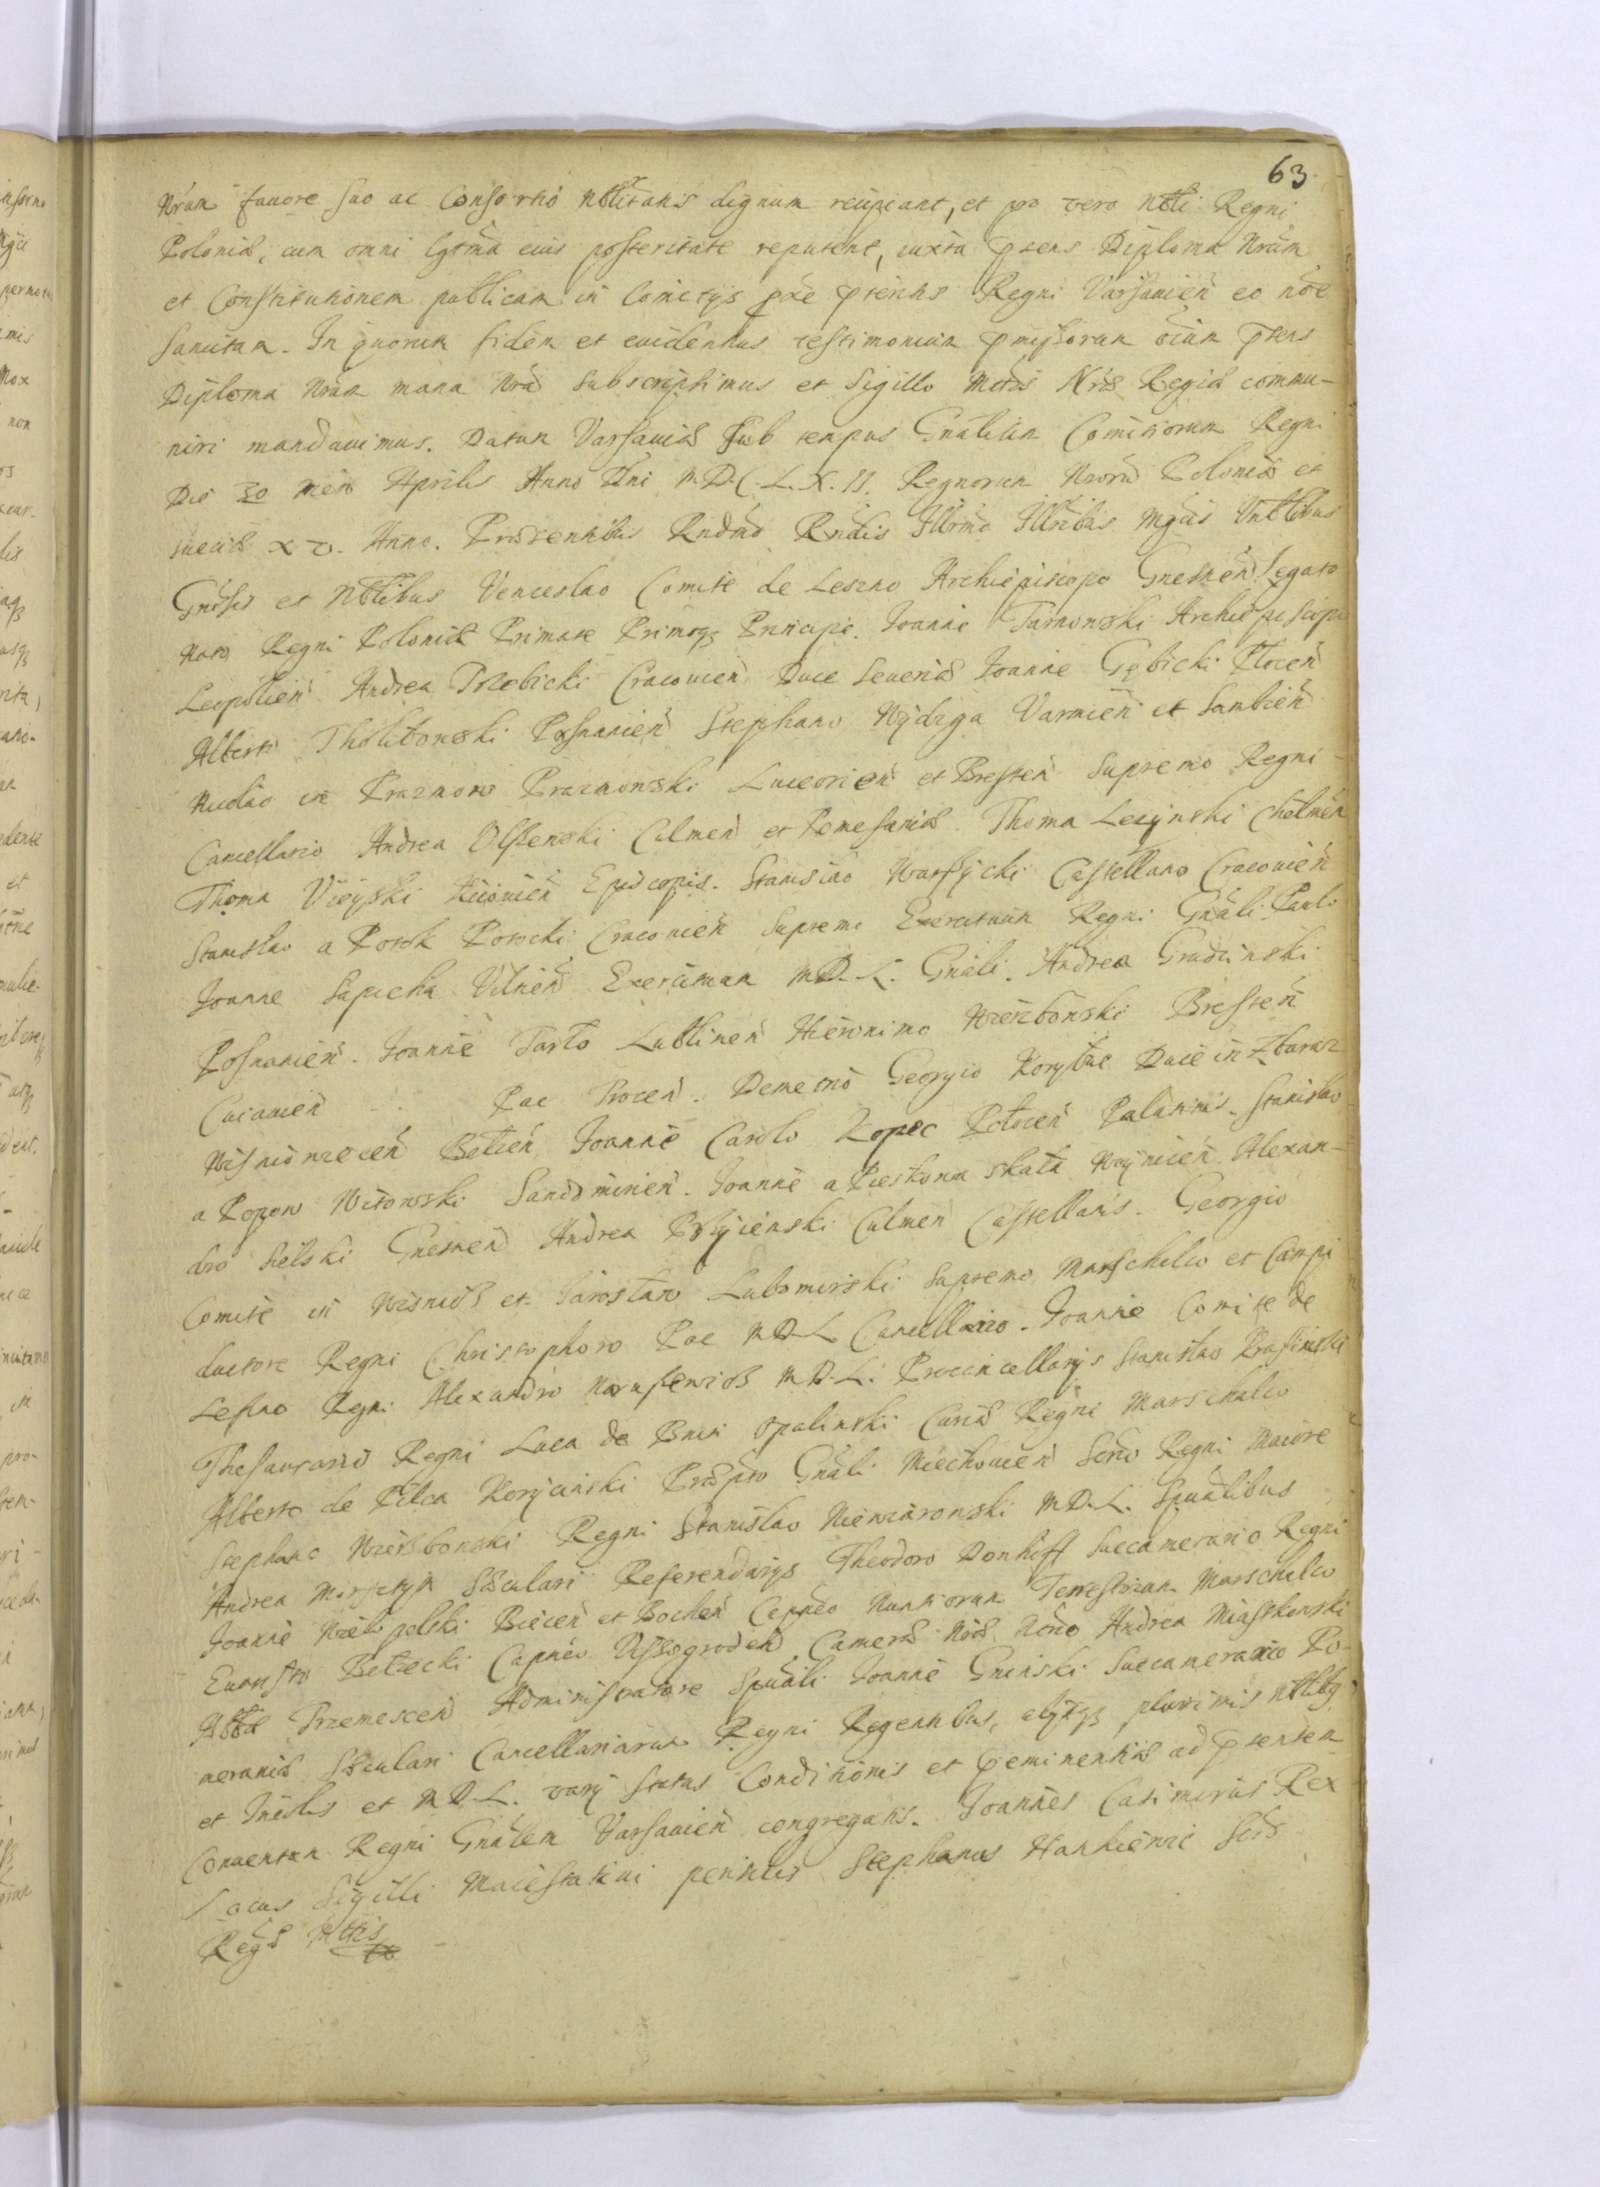 63.
Nram favore suo ac Consortio Nobilitatis dignum recipiant, et pro vero Nbli Regni
Poloniæ, cum omni lgtma eius posteritate reputent, iuxta pñens Diploma Nrum
et Constitutionem publicam in Comitijs pñtis Regni Varsavien eo noe
sancitam. In quorum fidem et evidentius testimonium pmissorum oium pñens
Diploma Nrum manu Nra subscripsimus et Sigillo Mttis Nræ Regiæ commu-
niri mandavimus. Datum Varsaviæ sub tempus Gnalium Comitiorum Regni
Die 30 Mens Aprilis Anno Dni M.D.C.L.X.II. Regnorum Nrorum Poloniæ et
Sueciæ XV. Anno. Præsentibus Rndmo Rndis Illrmo Illribus Mgcis Vnblibus
Gnosis et Nblibus Venceslao Comite de Leszno Archiepiscopo Gnesnen Legato
Nato Regni Poloniæ Primate Primoq Principe. Joanne Tarnowski Archiepiscopo
Leopolien Andrea Trzebicki Cracovien Duce Severiæ Joanne Gębicki Plocen
Alberto Tholibowski Posnanien Stephano Wydzga Varmien et Sambien
Nicolao in Prazmow Prazmowski Luceorien et Bresten Supremo Regni
Cancellario Andrea Olszewski Culmen et Pomesaniæ. Thoma Lezynski Chelmen
Thoma Vieyski Kiiovien Episcopis. Stanislao Warszycki Castellano Cracovien
Stanislao a Potok Potocki Cracovien Supremo Exercituum Regni Gnali. Paulo
Joanne Sapieha Vilnen Exercituum M.D.L. Gnali. Andrea Grudzinski
Posnanien. Joanne Tarlo Lublinen Hieronimo Wierzbowski Bresten
Cuiavien . . Pac Trocen. Demetrio Georgio Korybut Duce in Zbaraz
Wisniowiecen Belzen Joanne Carolo Kopec Polocen Palatinis. Stanislao
a Popow Witowski Sandomirien. Joanne a Pieskowa Skala Woynicien Alexan-
dro Sielski Gnesnen Andrea Culmen Castellanis. Georgio
Comite in Wisnicz et Jaroslaw Lubomirski Supremo Marschalco et Campi
ductore Regni Christophoro Pac M.D.L Cancellario. Joanne Comite de
Leszno Regni Alexandro Naruszewicz M.D.L. Procancellarijs Stanislao Krasinski
Thesaurario Regni Luca de Bnin Opalinski Curiæ Regni Marschalco
Alberto de Pilca Korycinski Præpto Gnali Miechovien Scrio Regni Maiore
Stephano Wierzbowski Regni Stanislao Niewiarowski M.D.L. Spualibus
Andrea Morsztyn Sæculari Referendarijs Theodoro Donhoff Succamerario Regni
Joanne Wielopolski Biecen et Bochen Capneo Nuntiorum Terrestrium Marschalco
Evaristo Belzecki Capneo Vissogroden Cameræ Nræ Andrea Miaskowski
Abbte Przemescen Administratore Spuali Joanne Gninski Succamerario Po-
meraniæ Sæculari Cancellariarum Regni Regentibus, alijsq plurimis Nblibq
et Incolis et M.D.L. varij Status Conditionis et Præeminentiis ad pñsentem
Conventum Regni Gnalem Varsavien congregatis. Joannes Casimirus Rex
Locus Sigilli Maiestativi pensilis Stephanus Hankiewic Scrs
Regæ Mttis